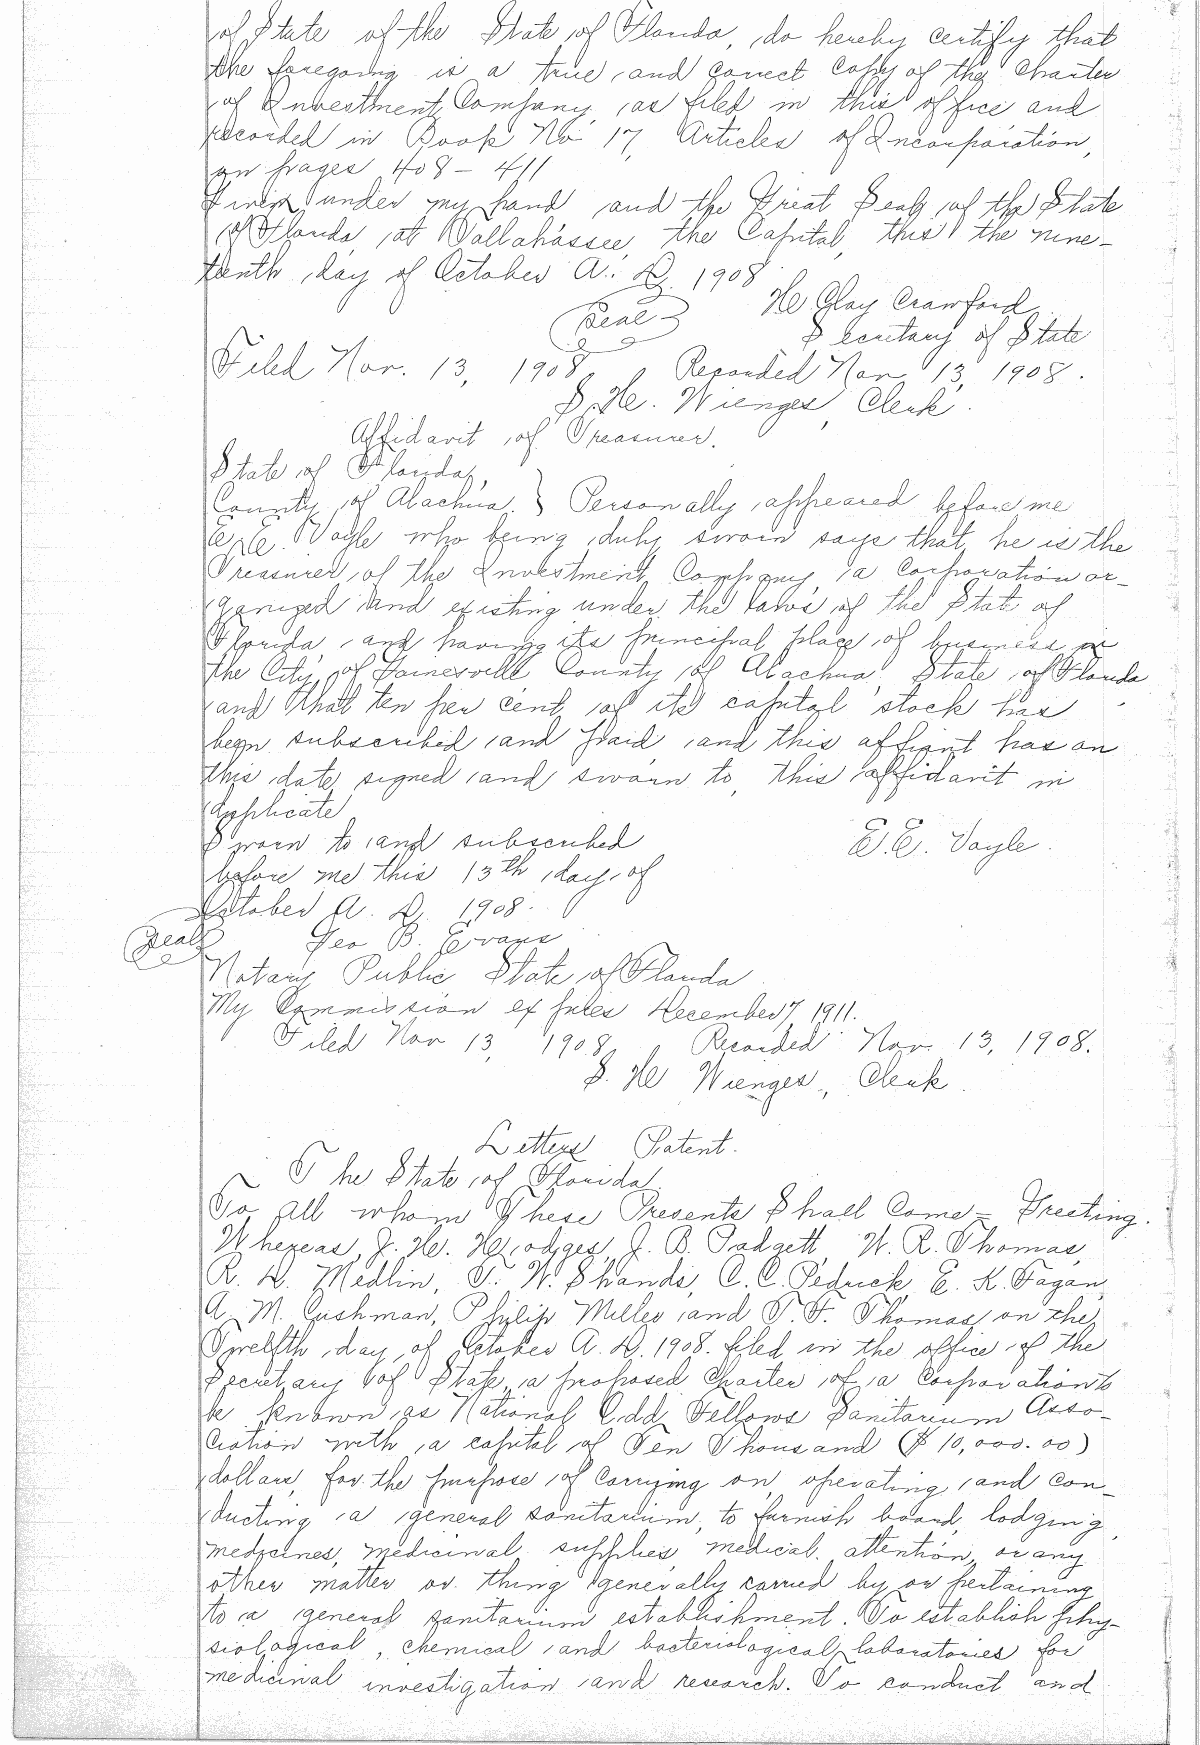 of State of the State of Florida, do hereby certify that
the foregoing is a true and correct copy of the Charter
of Investment Company, as filed in this office and
recorded in Book No 17, Articles of Incorporation,
on pages 408 - 411
Given under my hand and the Great Seal of the State
of Florida, at Tallahassee, the Capital, this the nine-
teenth day of October A. D. 1908
Seal
H Clay Crawford
Secretary of State
Filed Nov. 13, 1908 Recorded Nov 13, 1908.
S. H. Wienges, Clerk.
Affidavit of Treasurer.
State of Florida,
County of Alachua. } Personally appeared before me
E. E. Voyle who being duly sworn says that he is the
Treasurer of the Investment Company a corporation or-
ganized and existing under the laws of the State of
Florida, and having its principal place of business in
the City of Gainesville County of Alachua, State of Florida
and that ten per cent of its capital stock has
been subscribed and paid and this affiant has on
this date signed and sworn to this affidavit in
duplicate
Sworn to and subscribed E. E. Voyle.
before me this 13th day of
October A. D. 1908.
Seal Geo B. Evans
Notary Public State of Florida
My Commission expires December 7, 1911.
Filed Nov 13, 1908, Recorded Nov. 13, 1908.
S. H Wienges, Clerk.
Letters Patent.
The State of Florida.
To all whom These Presents Shall Come = Greeting.
Whereas, J. H. Hodges, J. B. Padgett W. R. Thomas,
R. D. Medlin, T. W. Shands, C. C. Pedrick, E. K. Fagan,
A. M. Cushman, Philip Miller and T. F. Thomas on the
Twelfth day of October A. D. 1908. filed in the office of the
Secretary of State a proposed Charter of a Corporation to
be known as National Odd Fellows Sanitarium Asso-
ciation with a capital of Ten Thousand ($ 10,000.00)
dollars, for the purpose of carrying on, operating and con-
ducting a general sanitarium, to furnish board, lodging,
medicines, medicinal supplies, medical. attention, or any
other matter or thing generally carried by or pertaining
to a general sanitarium establishment. To establish phy-
siological, chemical and bacteriological laboratories for
medicinal investigation and research. To conduct and